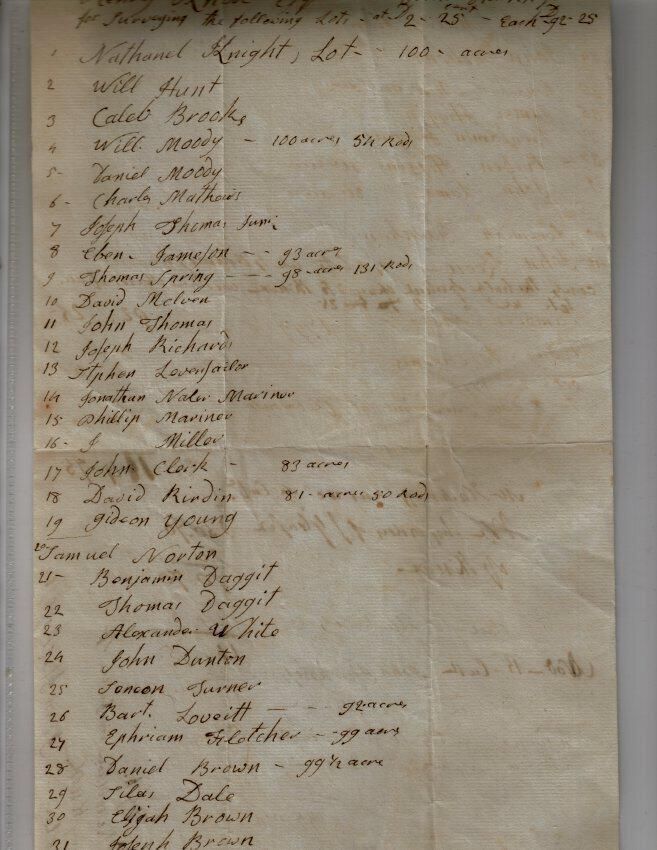 for Surveying the following Lots - at 2 - 25 - Each 92-25
1 Nathanel Knight, Lot - 100 - acres
2 Will Hunt
3 Caleb Brooks
4 Will. Moody - 100 acres 54 Rods
5- Daniel Moody
6- Charls Mathews
7 Joseph Thomas Jun:
8 Eben. Jameson - - 93 acres
9 Thomas Spring - - - 98 - acres 131 Rods
10 David McIven
11 John Thomas
12 Joseph Richards
13 Stphen Levensailor
14 Jonathan Mariner
15 Phillip Mariner
16- J Miller
17 John Clerk - 83 acres
18 David 81 - acres 50 Rods
19 Gideon Young
20 Samuel Norton
21- Benjamin Daggit
22 Thomas Daggit
23 Alexander White
24 John Dunton
25 Turner
26 Bart. Loveitt - - - 92 acres
27 Ephriam Fletcher - - 99 acrs
28 Daniel Brown - 99 1/2 acre
29 Silas Dale
30 Elijah Brown
31 Joseph Brown